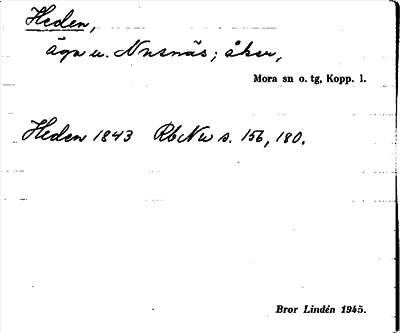 Heden,
äga u. Nusnäs; åker,
Mora sn o. tg, Kopp. l.
Heden 1843 Rb Nu s. 156, 180.
Bror Lindén 1945.